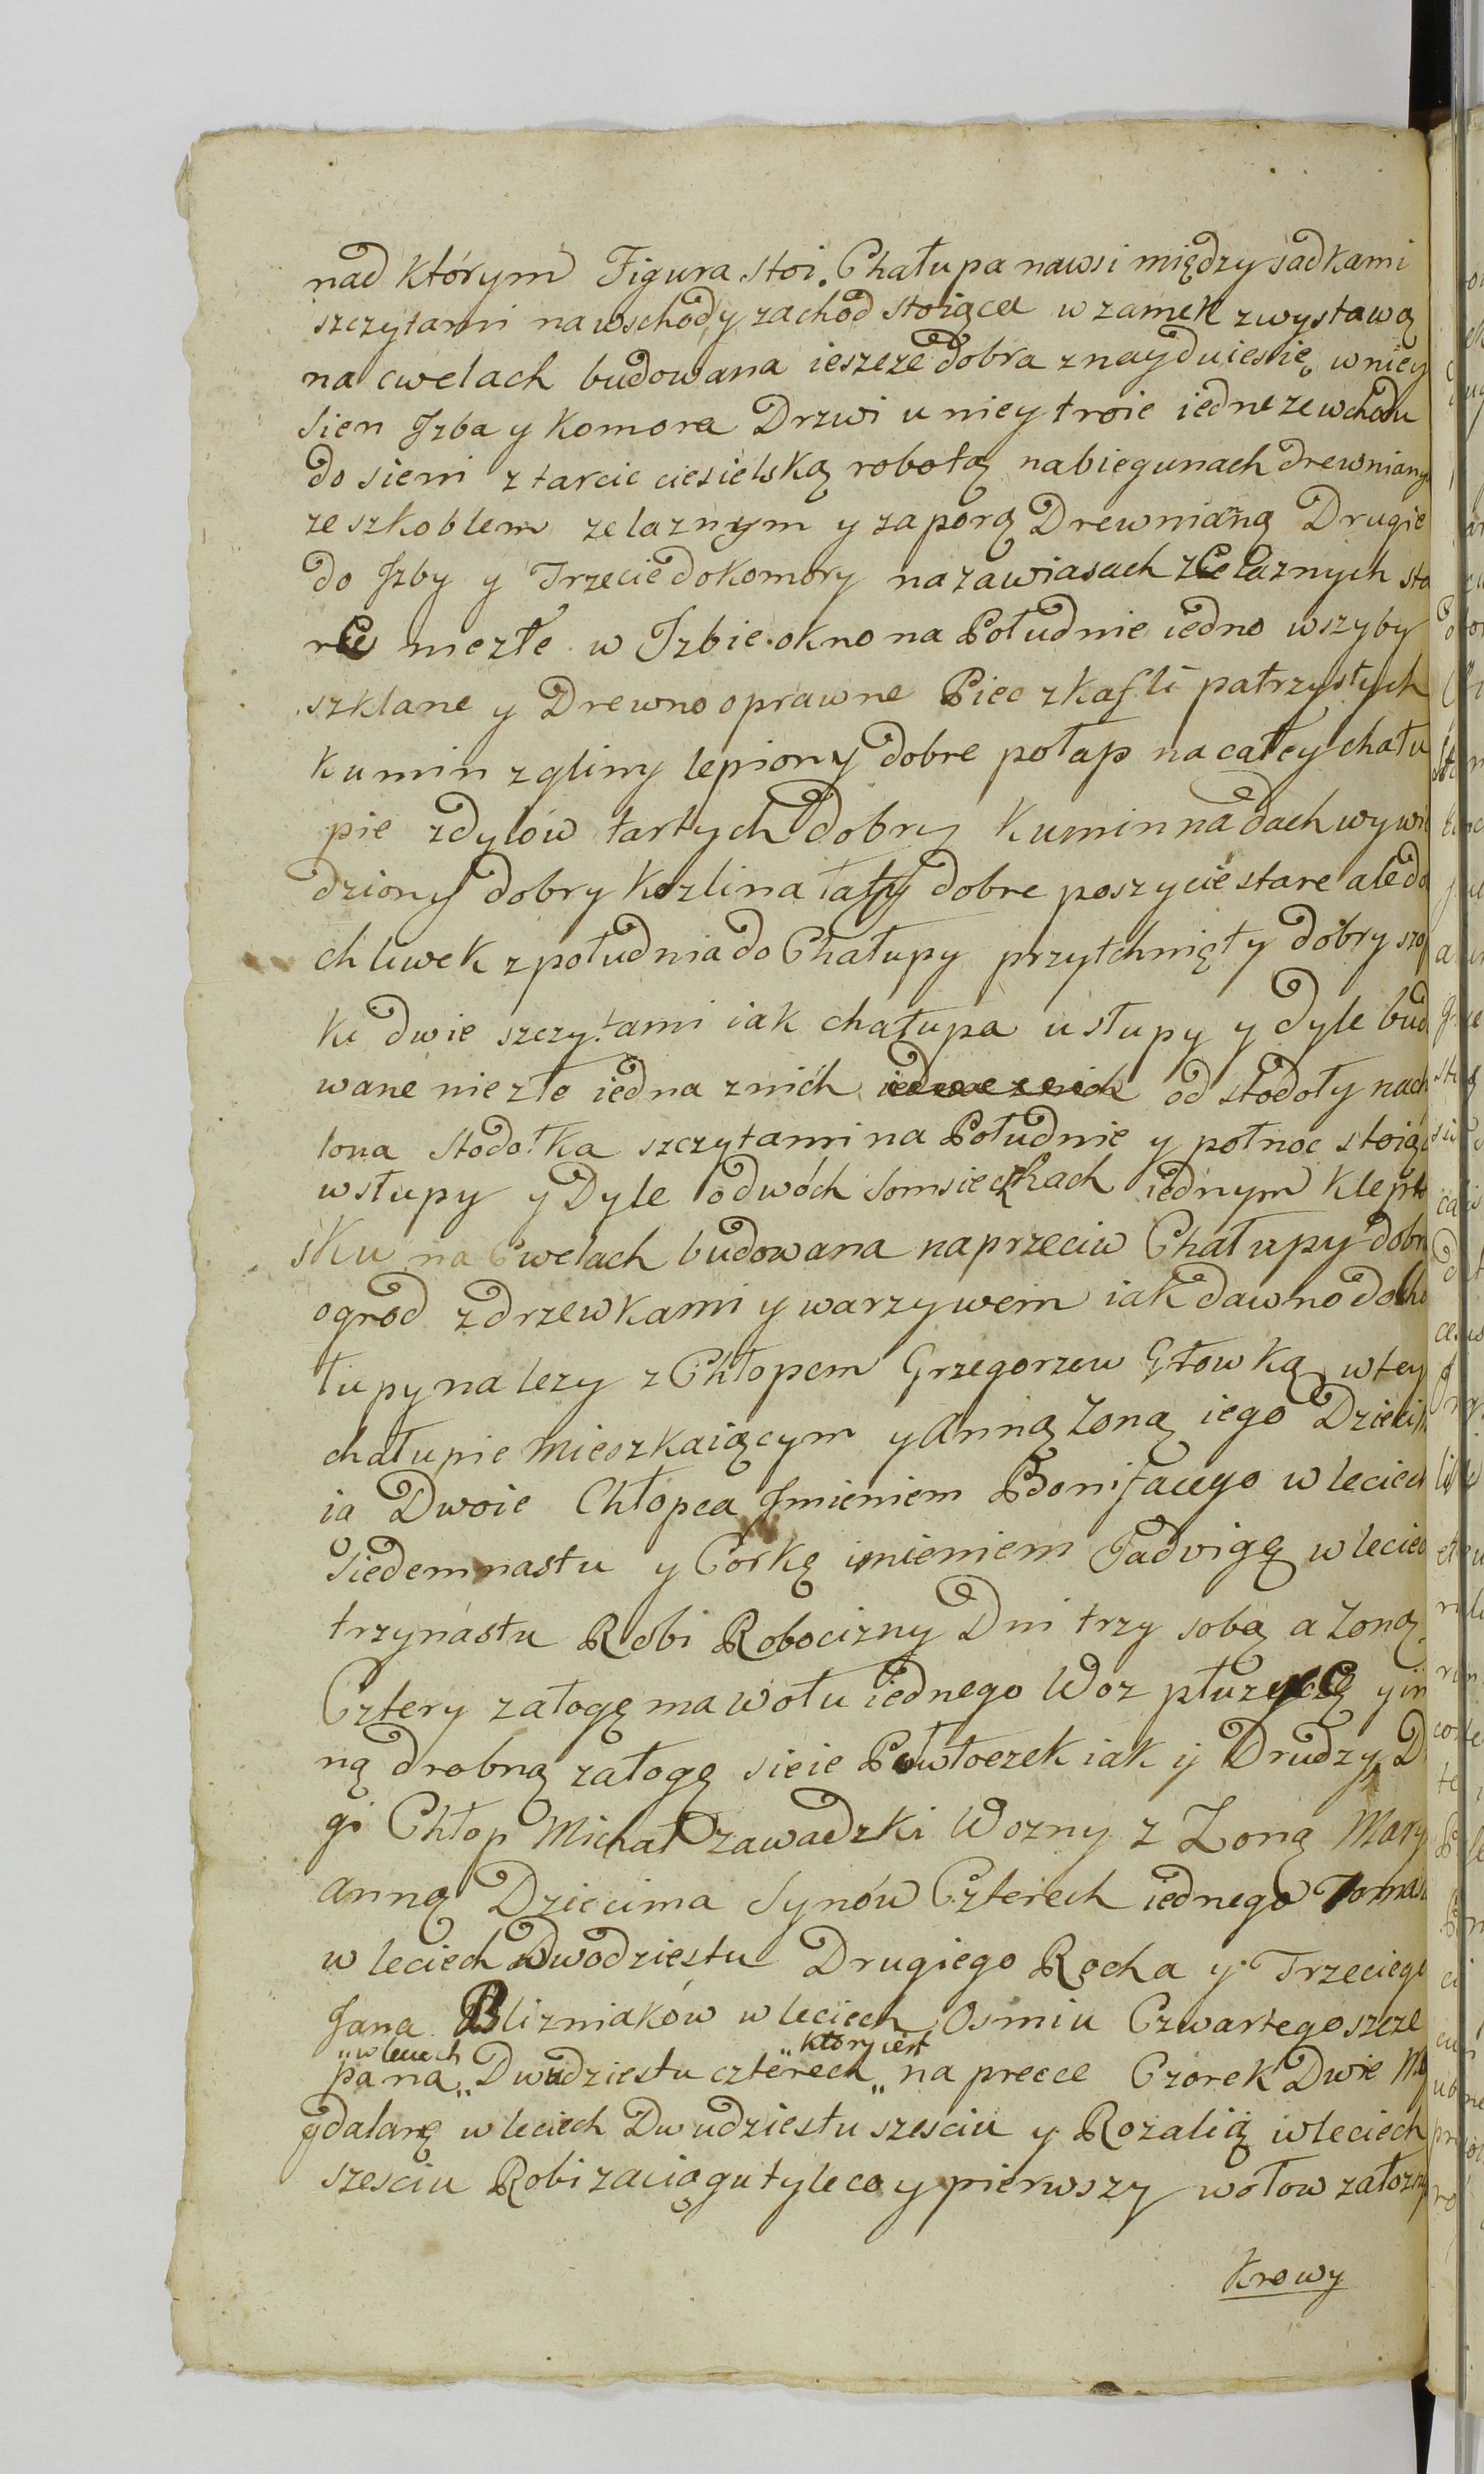 nad którym Figura stoi. Chałupa nawsi między sadkami
szczytami nawschody zachod stoiąca w zamek zwystawą
na cwelach budowana ieszcze dobra znayduiesię, wniey
Sien Jzba y Komora Drzwi uniey troie iedne ze wchodu
do sieni z tarcic ciesielską robotą nabiegunach drewniany
ze szkoblem zelaznym y zaporą Drewnianą Drugie
do Jzby y Trzecie do komory nazawiasach zelaznych sta
re niezłe w Jzbie okno na Południe iedno wszyby
szklane y Drewno oprawne Piec zkafli patrzystych
kumin zgliny lepiony dobre połap nacałey chału
pie zdylów tartych dobry kumin nadach wywie
dziony dobry kozlina łaty dobre poszycie stare ale do
chliwek zpołudnia do Chałupy przytchnięty dobry szop
ki dwie szczytami iak chałupa usłupy y dyle bud
wane niezłe iedna znich od stodoły nach
lona stodołka szczytami na Południe y połnoc stoiąc
wsłupy y Dyle odwóch somsieczkach iednym klepi
sku na Cwelach budowana naprzeciw Chałupy dobra
ogrod zdrzewkami y warzywem iak dawno do cha
łupy nalezy z Chłopem Grzegorzem Głowką wtey
chałupie mieszkaiącym y Anną Zoną iego Dziecim
ia Dwoie Chłopca Jmieniem Bonifacego w leciech
Siedemnastu y Corkę imieniem Jadvigę w leciech
trzynastu Robi Robocizny Dni trzy sobą a Zoną
Cztery załogę ma wołu iednego Woz płuzycę y in
ną drobną załogę sieie Powłoczek iak y Drudzy Dr
gi Chłop Michał Zawadzki Wozny z Zoną Mary
anną Dziecima Synów Czterech iednego Tomasz
w leciech Dwodziestu Drugiego Rocha y Trzeciego
Jana Blizniaków w leciech Osmiu Czwartego szcze
„w leciech „który iest
pana „ Dwudziestu czterech „ na precce Czorek Dwie Ma
gdalanę w leciech Dwudziestu szesciu y Rozalią wleciech
szesciu Robi zaciągu tyle co y pierwszy wołow załozny
Krowy